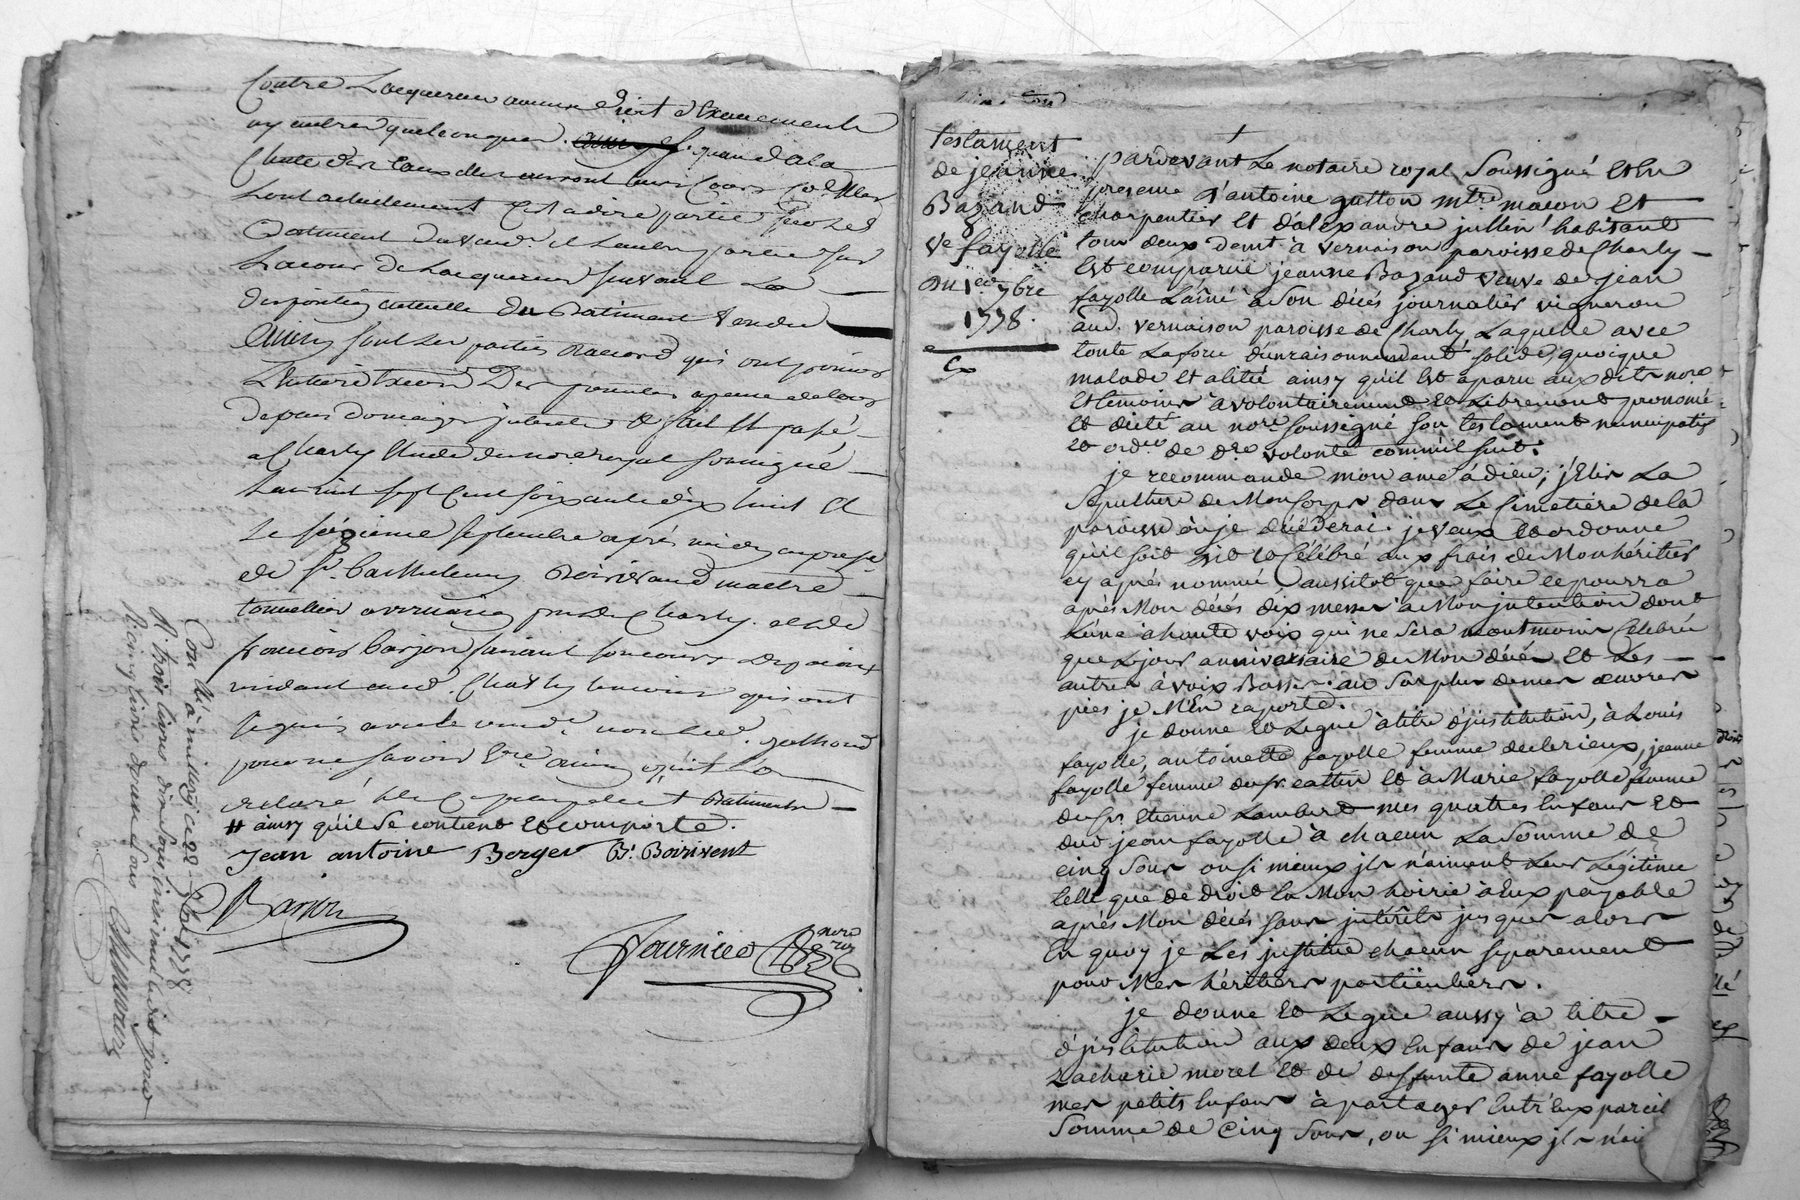 Contre Lacquereur aucun droit d'Evenement
ny autres quelconques. quand a la
Chute des Eaux elles auront leurs Cours
sont actuellement C'est a dire partie
Batiment du vend. et Lautre partie sur
La cour de Lacquereur suivant La
Disposition actuelle du Batiment Vendu
Ainsy sont Les parties D'accord qui ont promis
depens Domages jnterets &c fait Et passé
a Charly Etude du nore royal soussigné
Lan mil sept Cent soixante dix huit Et
Le seizieme septembre après midy en presce
de Sr. Barthelemy Boirivand maitre
tonnelier a vernaison psse de Charly. et de
francois Barjon
residant aud. Charly temoins qui ont
signé avec le vend. non Led.
pour ne savoir Ecre ainsy qu'il La
declaré Batiments
# ainsy qu'il se contient et comporte.
Jean antoine Berger B. Boirivent
Barjon
Fournier nore roy
Con.lé à millery ce 22 7bre 1778
R. trois livres dix sols
testament
de jeanne
Bazand
ve fayolle
Du 1er 7bre
1778.
Ex
pardevant Le notaire royal soussigné et En
presence d'antoine gatton mtre. macon Et
charpentier Et d'alexandre jullien habitant
tous deux demt à vernaison paroisse de Charly
Est comparue jeanne Bazand veuve de jean
fayolle Lainé à Son décés journalier vigneron
aud. vernaison paroisse de Charly Laquelle avec
toute La force d'un raisonnement solide, quoique
malade Et alitée ainsy qu'il Est aparu aux dits nore
Et temoins à volontairement et Librement prononcé
et dicté au nore soussigné son testament nuncupatif
et ordce de dre volonté comm'il suit.
je recommande mon ame à dieu, j'Elis La
Sepulture de Mon Corps dans Le Cimetiere de la
paroisse où je décéderai. je veux et ordonne
qu'il soit dit et Célébré aux frais de Mon héritier
cy aprés nommé aussitot que faire se pourra
aprés Mon décés dix messes à Mon jntention dont
L'une à haute voix qui ne sera néantmoins Célébrée
que Le jour anniversaire de Mon décés et Les
autres à voix Basse. au Surplus de mes œuvres
pies je M'En raporte.
je donne et Legue à titre d'justitution, à Louis
fayolle, antoinette fayolle femme de clerieux, jeanne
fayolle femme du Sr. cattin et à Marie fayolle femme
du Sr. Etienne Lambert mes quatres Enfans et
dud. jean fayolle à chacun La Somme de
cinq Sous ou si mieux jls n'aiment Leur Légitime
telle que de droit En Mon hoirie à Eux payable
aprés Mon décés sans jntérêts jusques alors
En quoy je Les justitue chacun séparement
pour Mes héritiers particuliers.
je donne et Legue aussy à titre
d'justitution aux deux Enfans de jean
Zacharie morel et de deffunte anne fayolle
mes petits Enfans à partager Entr'Eux pareil
Somme de cinq Sous, ou si mieux jls n'ai